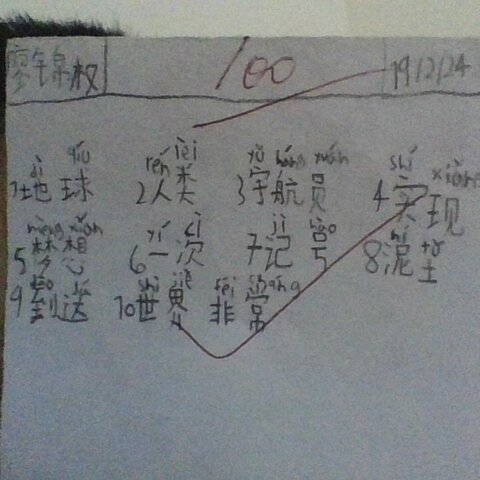 廖 权 100 19/2/24
dì qiú rén lèi yǔ háng yuán shí
1地球 2人类 3宇航员 4实现
mèng xiǎng yí cì jì hào ní
5梦想 6一次 7记号 8泥
shì jiè fēi
9到送 10世界 非常